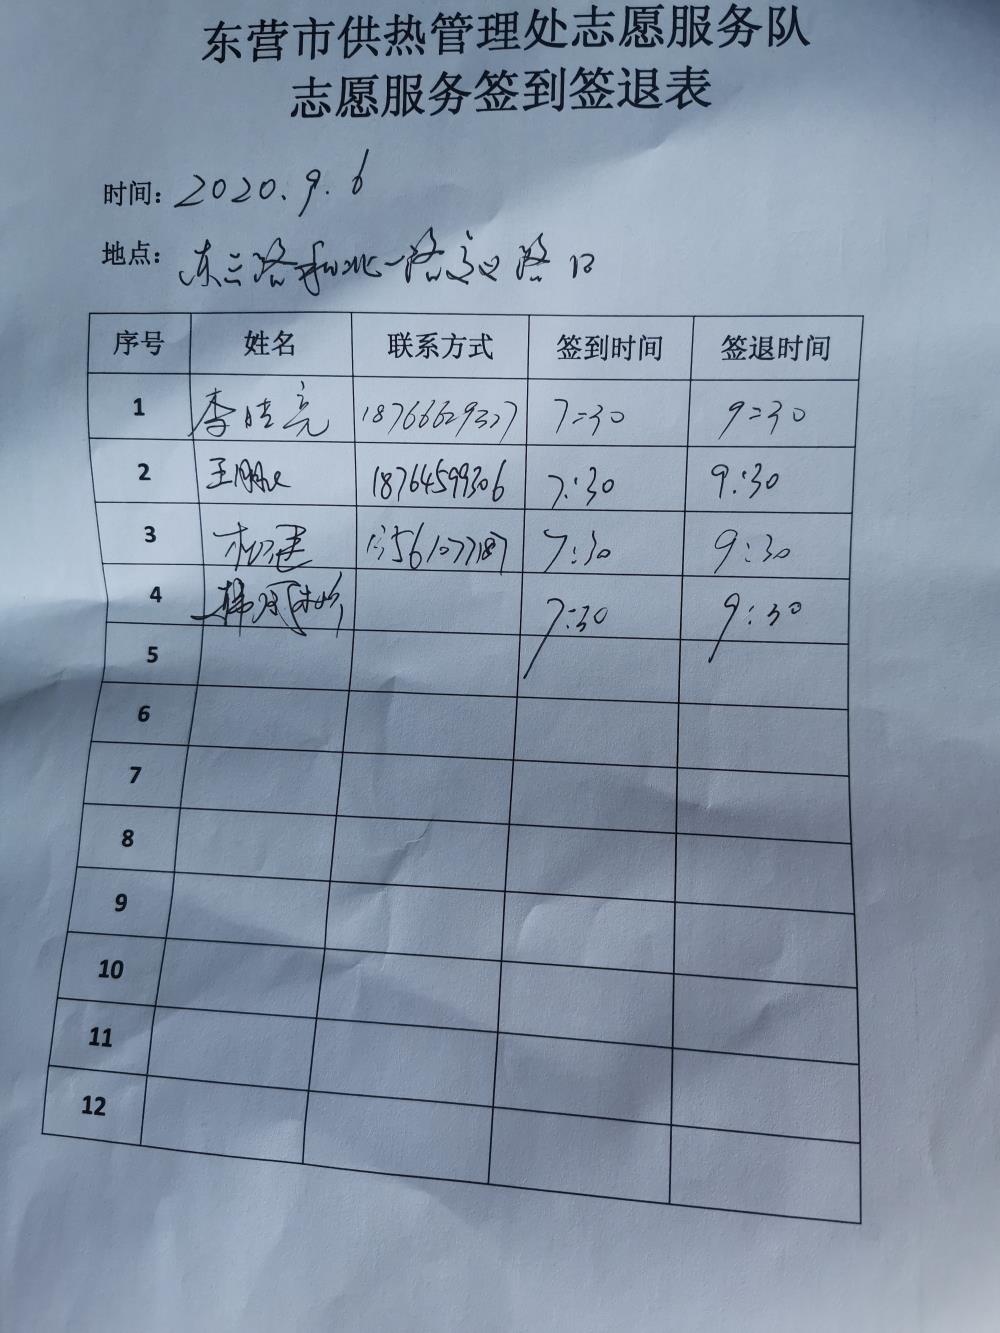 东营市供热管理处志愿服务队
志愿服务签到签退表
时间: 2020.9.6
地点: 东三路和北一路交叉路口
序号 姓名 联系方式 签到时间 签退时间
1 李 亮 18766629327 7:30 9:30
2 王鹏 18764599306 7:30 9:30
3 7:30 9:30
4 韩 7:30 9:30
5
6
7
8
9
10
11
12